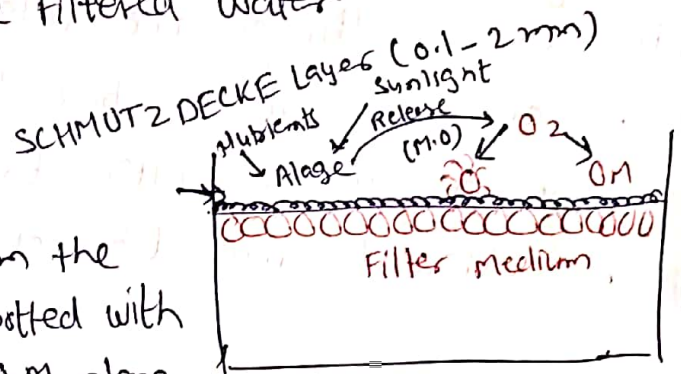 Filtered Water
SCHMUTZ DECKE Layer (0.1 - 2 mm)
Nutrients
Sunlight
Release
(M.O)
O2
Alage
OM
Filter Medium
the
with